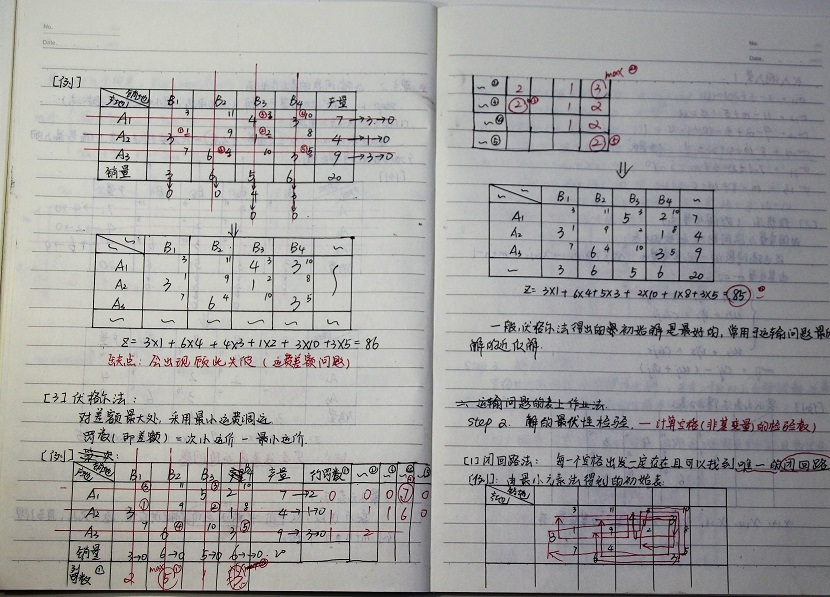 No.
Date.
[例]
销地 产地 B₁ B₂ B₃ B₄ 产量
A₁ 3 11 4 3 3 10 7→3→0
A₂ 3 1 9 1 2 8 4→1→0
A₃ 7 6 4 10 3 5 9→3→0
销量 3 6 5 6 20
0 0 4 3
0 0
⇓
B₁ B₂ B₃ B₄ ~
A₁ 3 11 4 3 3 10
A₂ 3 1 9 1 2 8
A₃ 7 6 4 10 3 5
~ ~ ~ ~ ~ ~
Z = 3×1 + 6×4 + 4×3 + 1×2 + 3×10 + 3×5 = 86
缺点: 会出现顾此失彼 (运费差额问题)
[3] 伏格尔法:
对差额最大处, 采用最小运费调运.
罚数(即差额) = 次小运价 - 最小运价.
[例]
产地 销地 B₁ B₂ B₃ 产量 行罚数① ~② ~③ ~④ ~⑤
A₁ 3 11 5 3 2 10 7→2 0 0 0 7 0
A₂ 3 1 9 2 1 8 4→1→0 1 1 1 6 0
A₃ 7 6 4 10 3 5 9→3→0 1 2
销量 3→0 6→0 5→0 6→→0
列罚数① 2 max 5 1 3
No.
Date.
max
~② 2 1 3
~③ 2 1 2
~④ 1 2
~⑤ 2
⇓
B₁ B₂ B₃ B₄ ~
A₁ 3 11 5 3 2 10 7
A₂ 3 1 9 2 1 8 4
A₃ 7 6 4 10 3 5 9
~ 3 6 5 6 20
Z = 3×1 + 6×4 + 5×3 + 2×10 + 1×8 + 3×5 = 85
一般, 伏格尔法得出的最初始解是最好的, 常用于运输问题最
解的近似解
二. 运输问题的表上作业法
step 2. 解的最优性检验 — 计算空格(非基变量)的检验数)
[1] 闭回路法: 每一个空格出发一定存在且可以找到唯一的闭回路
[例]: 由最小元素法得到的初始表